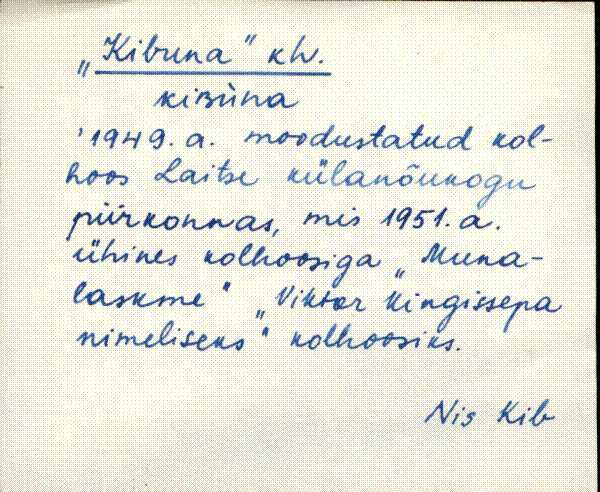 „Kibuna" kh.
kiBùna
'1949. a. moodustatud kol-
hoos Laitse külanõukogu
piirkonnas, mis 1951. a.
ühines kolhoosiga „Muna-
laskme" „Viktor Kingissepa
nimeliseks" kolhoosiks.
Nis Kib